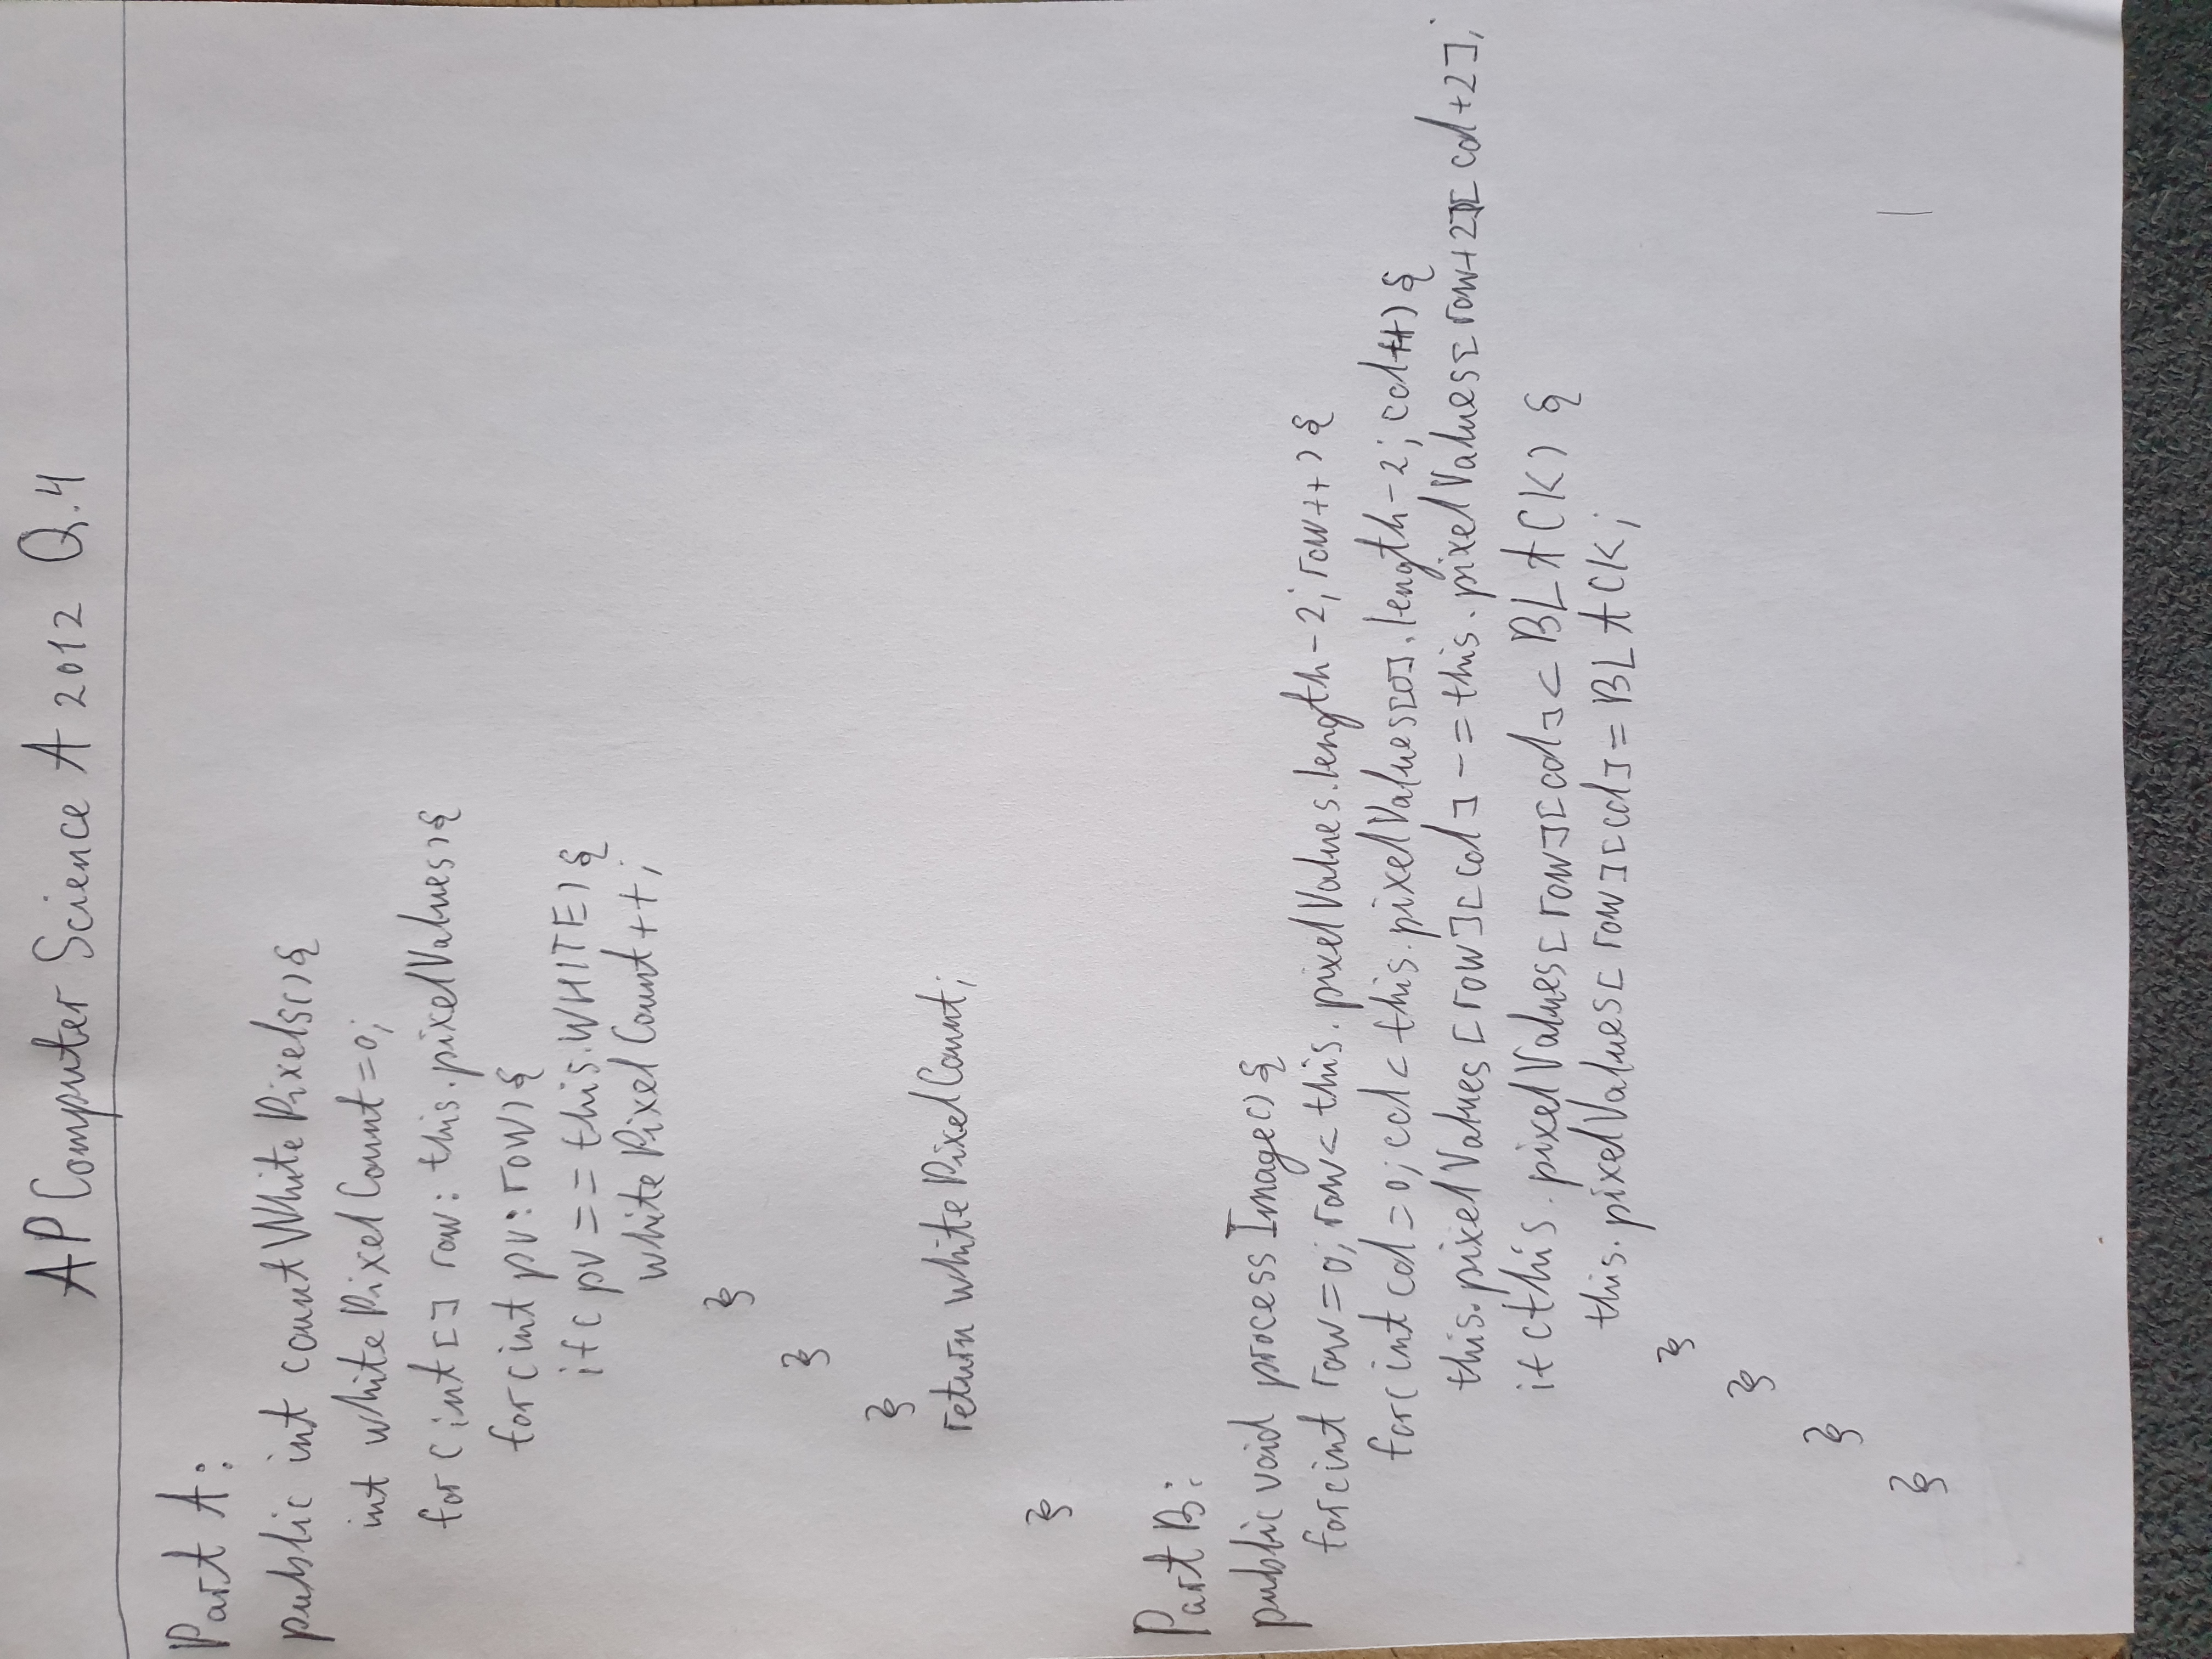 AP Computer Science A 2012 Q.4
Part A:
public int countWhitePixels(){
int whitePixelCount=0;
for(int[] row: this.pixelValues){
for(int pv:row){
if(pv==this.WHITE){
whitePixelCount++;
}
}
}
return whitePixelCount;
}
Part B:
public void processImage(){
for(int row=0;row<this.pixelValues.length-2;row++){
for(int col=0;col<this.pixelValues[0].length-2;col++){
this.pixelValues[row][col]-=this.pixelValues[row+2][col+2];
if(this.pixelValues[row][col]<BLACK){
this.pixelValues[row][col]=BLACK;
}
}
}
}